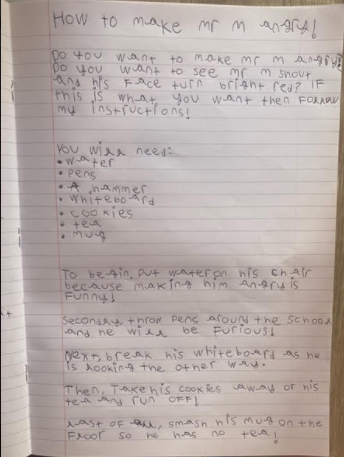 How to make mr m angry!
Do you want to make mr m angry?
Do you want to see mr m shout
and his face turn bright red? If
this is what you want then follow
my instructions!
You will need:
• water
• pens
• A hammer
• whiteboard
• cookies
• tea
• mug
To begin, put water on his chair
because making him angry is
funny!
Secondly, throw pens around the school
and he will be furious!
Next, break his whiteboard as he
is looking the other way.
Then, Take his cookies away or his
tea and run off!
Last of all, smash his mug on the
floor so he has no tea!